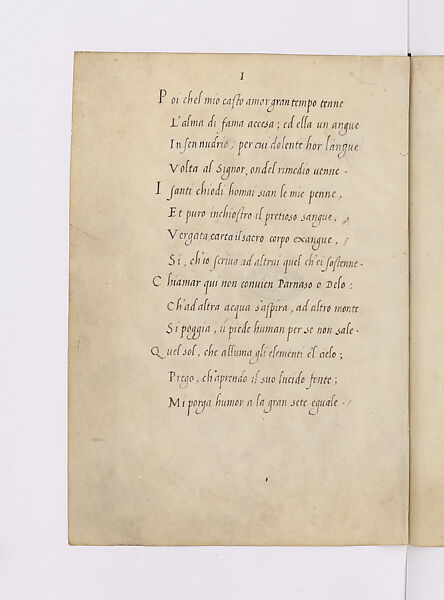 I
Poi chel mio casto amor gran tempo tenne
L'alma di fama accesa; ed ella un angue
In sen nudrio; per cui dolente hor langue
Volta al Signor, ondel rimedio venne.
I santi chiodi homai sian le mie penne,
Et puro inchiostro il pretioso sangue,
Vergata carta il sacro corpo exangue,
Si, ch'io scriva ad altrui quel ch'ei sostenne.
Chiamar qui non convien Parnaso o Delo:
Ch'ad altra acqua s'aspira, ad altro monte
Si poggia, u piede human per se non sale.
Quel sol, che alluma gli elementi e'l cielo;
Prego, ch'aprendo il suo lucido fonte;
Mi porga humor a la gran sete eguale.